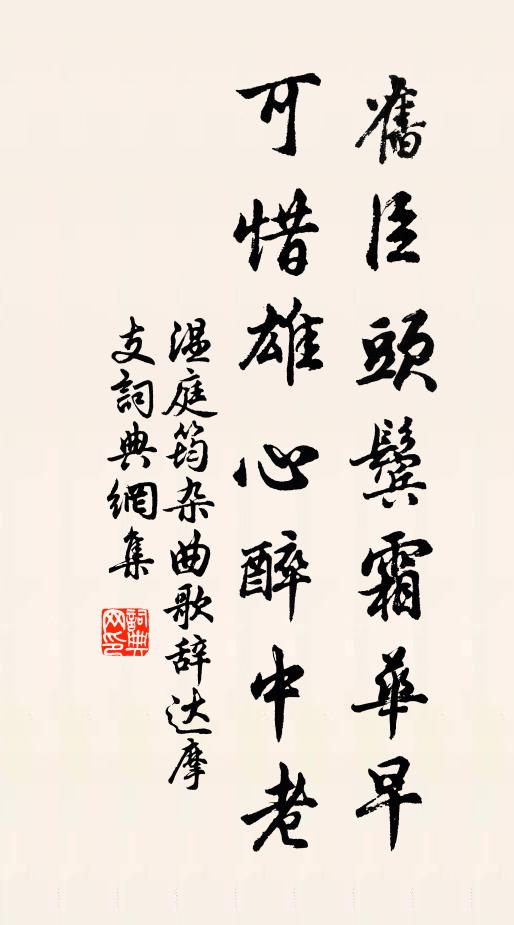 舊臣頭鬢霜華早
可惜雄心醉中老
温庭筠杂曲歌辞达摩
支詞典網集
詞典
网印